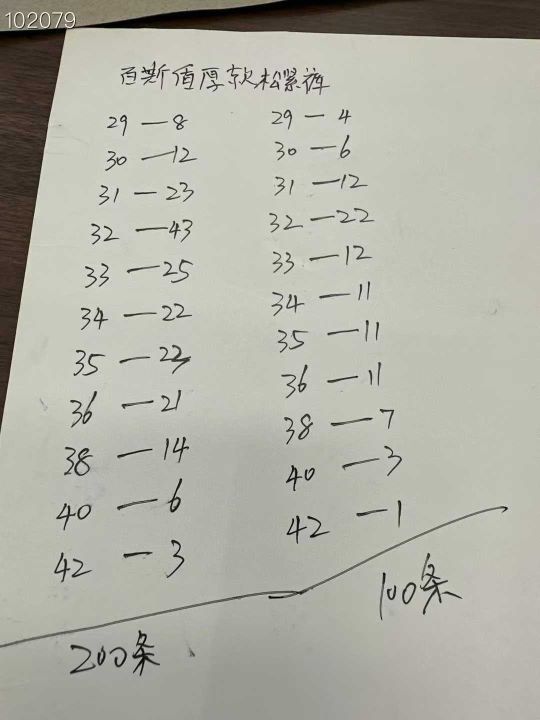 102079
百斯值厚款松紧裤
29 — 8
30 — 12
31 — 23
32 — 43
33 — 25
34 — 22
35 — 23
36 — 21
38 — 14
40 — 6
42 — 3
200条
29 — 4
30 — 6
31 — 12
32 — 22
33 — 12
34 — 11
35 — 11
36 — 11
38 — 7
40 — 3
42 — 1
100条